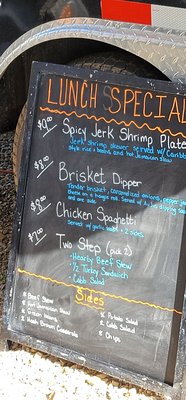 LUNCH SPECIAL
$9.00 Spicy Jerk Shrimp Plate
Jerk shrimp skewer served w/ Caribb
Style rice + beans, and hot Jamaican Slaw
$8.00 Brisket Dipper
Tender brisket, caramelized onions, pepper ja
Cheese on a hoagie roll. Served w/ Au jus dipping sau
and one side
$8.00 Chicken Spaghetti
Served w/ garlic toast + 2 sides
$7.00 Two Step (pick 2)
- Hearty Beef Stew
- 1/2 Turkey Sandwich
- Cobb Salad
Sides
* Beef Stew
* Green Beans
* Hash Brown Casserole
* Potato Salad
* Cobb Salad
* Chips